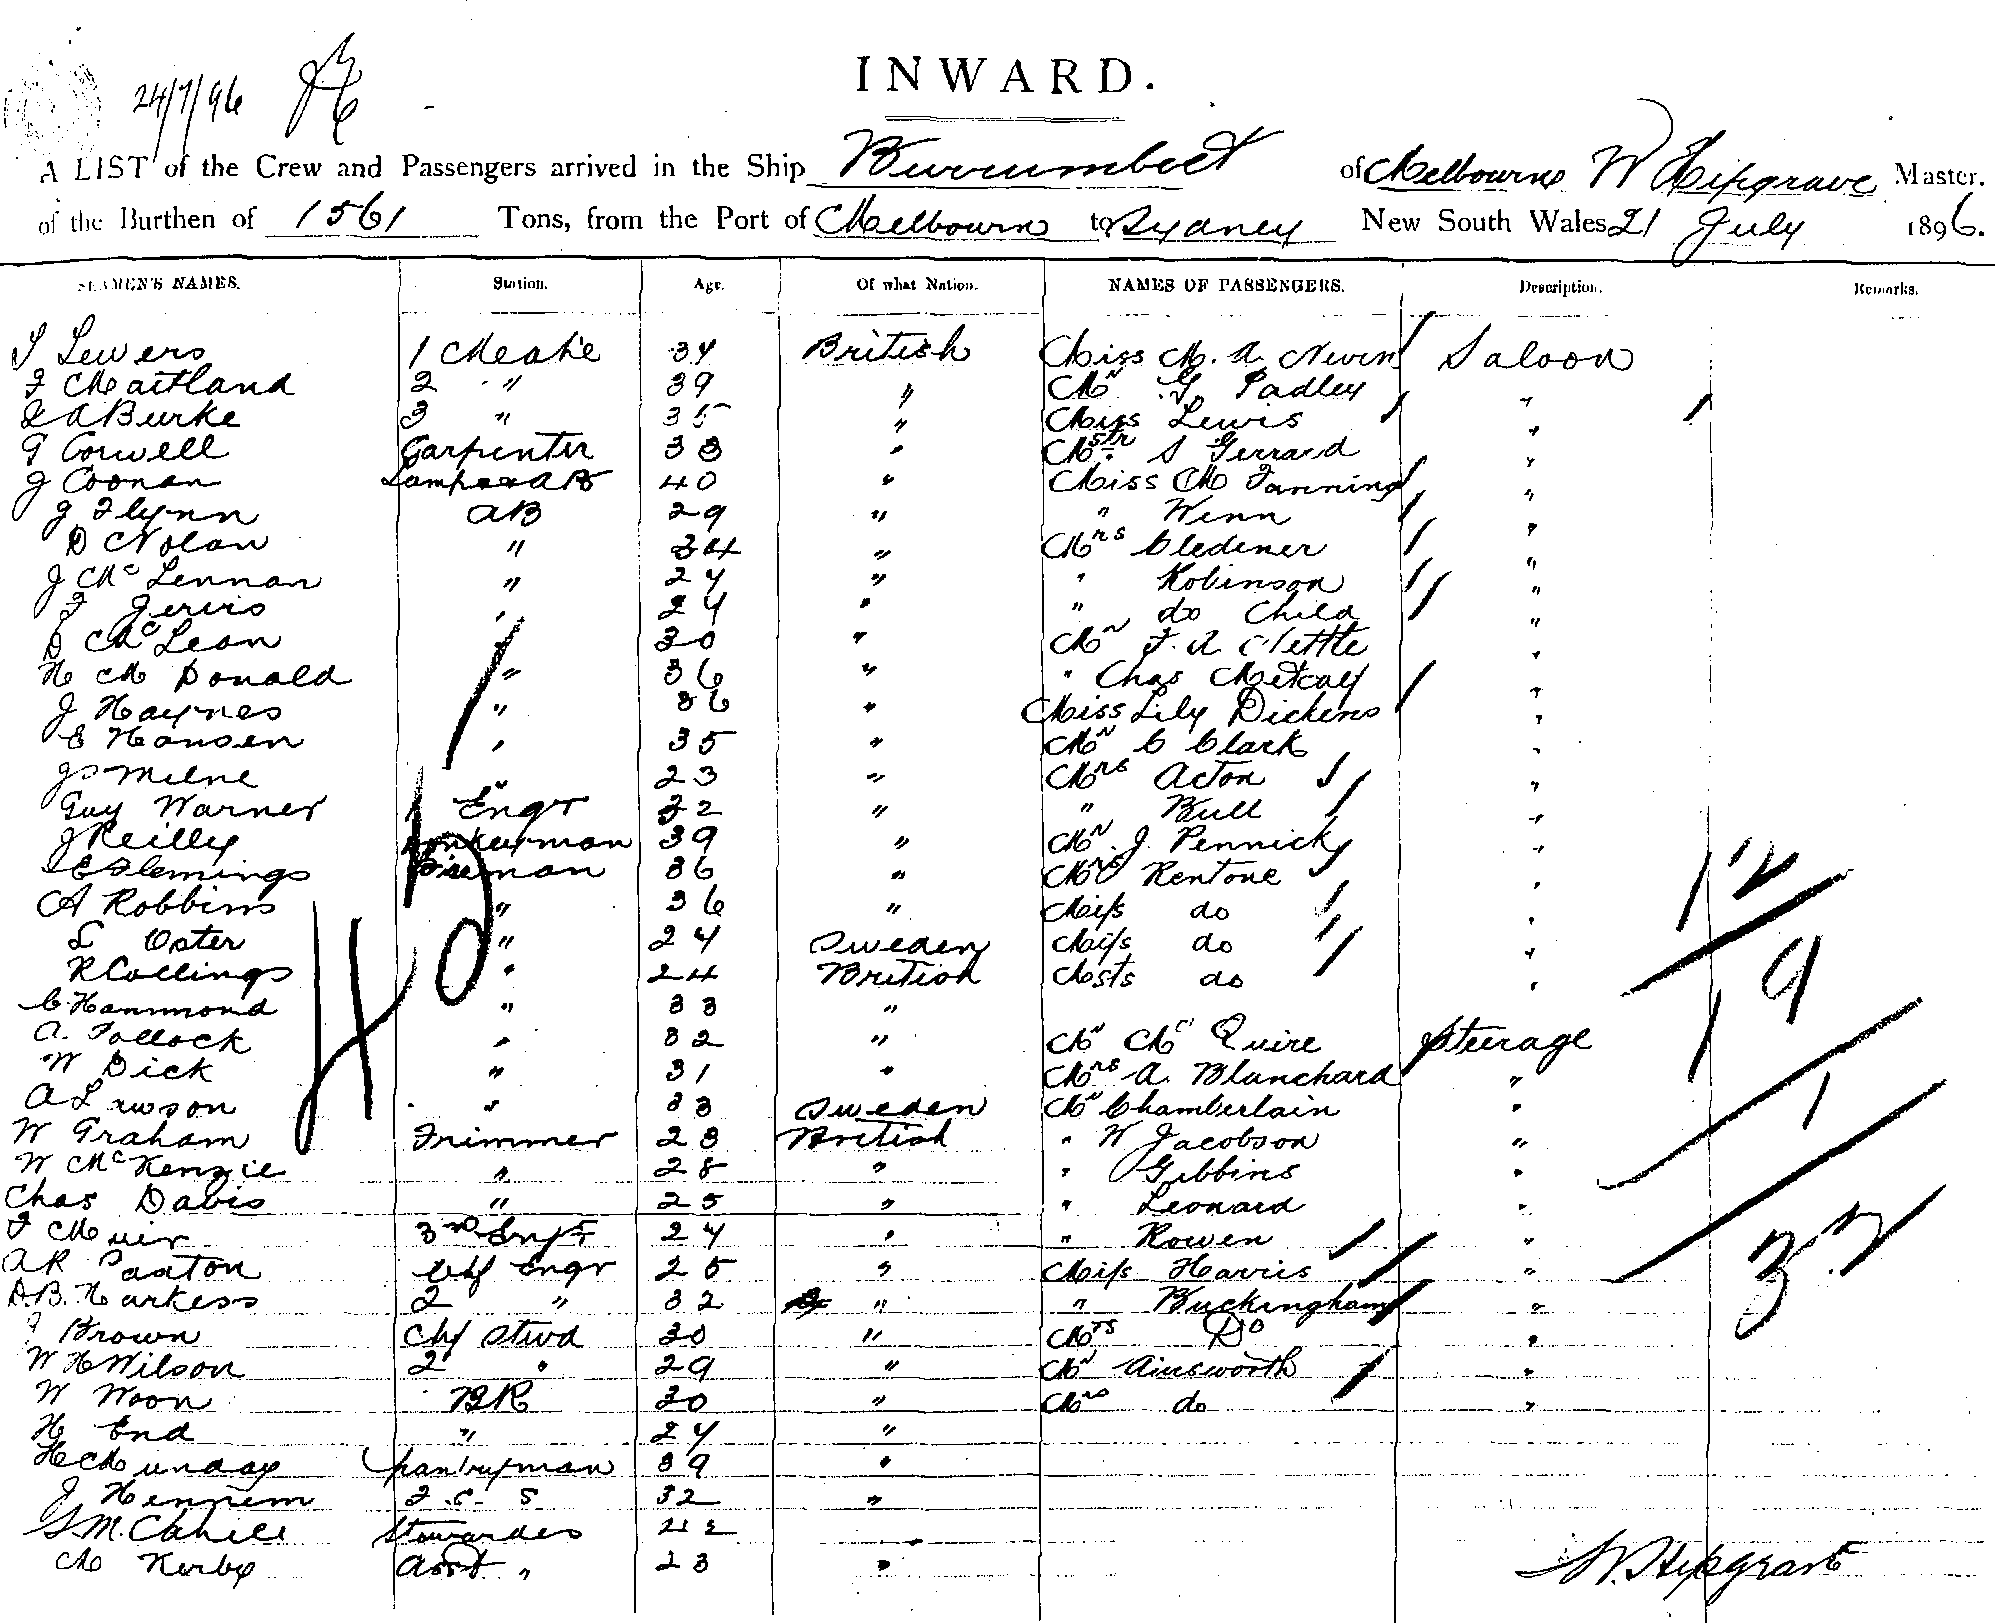 INWARD.
24/7/96
A LIST of the Crew and Passengers arrived in the Ship Burrumbeet of Melbourne W Hipgrave Master.
of the Burthen of 1561 Tons, from the Port of Melbourne to Sydney New South Wales 21 July 1896.
SEAMEN'S NAMES. Station. Age. Of what Nation. NAMES OF PASSENGERS. Description. Remarks.
Lewers 1 Mate 34 British Miss M. A. Nevin Saloon
F Maitland 2 " 39 " Mr G. Padley "
A Burke 3 " 35 " Miss Lewis "
Corwell Carpenter 38 " Mstr S Gerrard "
J Coonan Lamps AB 40 " Miss M Fanning "
J Flynn AB 29 " " Wenn "
D Nolan " 34 " Mrs Cledener "
J McLennan " 24 " " Robinson "
F Jervis " 24 " " do Child "
D McLean " 30 " Mr F. A. Nettle "
H McDonald " 36 " " Chas Metcalf "
J Haynes " 36 " Miss Lily Dickens "
E Hansen " 35 " Mr C Clark "
J Milne " 23 " Mrs Acton "
Guy Warner Engr 32 " " Bull "
J Reilly Donkeyman 39 " Mr. J. Pennick "
E Flemings Fireman 36 " Mrs Rentone "
A Robbins " 36 " Miss do "
L Oster " 24 Sweden Miss do "
R Collings " 24 British Msts do "
C. Hammond " 33 "
A. Pollock " 32 " Mr McQuire Steerage
W Dick " 31 " Mrs A. Blanchard "
A Lawson " 33 Sweden Mr Chamberlain "
W Graham Trimmer 23 British " W Jacobson "
W McKenzie " 28 " " Gibbins "
Chas Davis " 25 " " Leonard "
F Muir 3rd Engr 24 " " Rowen "
A R Paaton Chf Engr 25 " Miss Harris "
D.B. Harkess 2 " 32 " " Buckingham "
Brown Chf Stwd 30 " Mrs Do "
W H Wilson 2 " 29 " Mr Ainsworth "
W Woon BR 30 " Mrs do "
H End " 24 "
H Munday pantryman 39 "
J Hennem F. C. S 32 "
M. Cahill Stewardes
M Kerby Asst " 23 "
40
12
19
1
32
W. Hipgrave